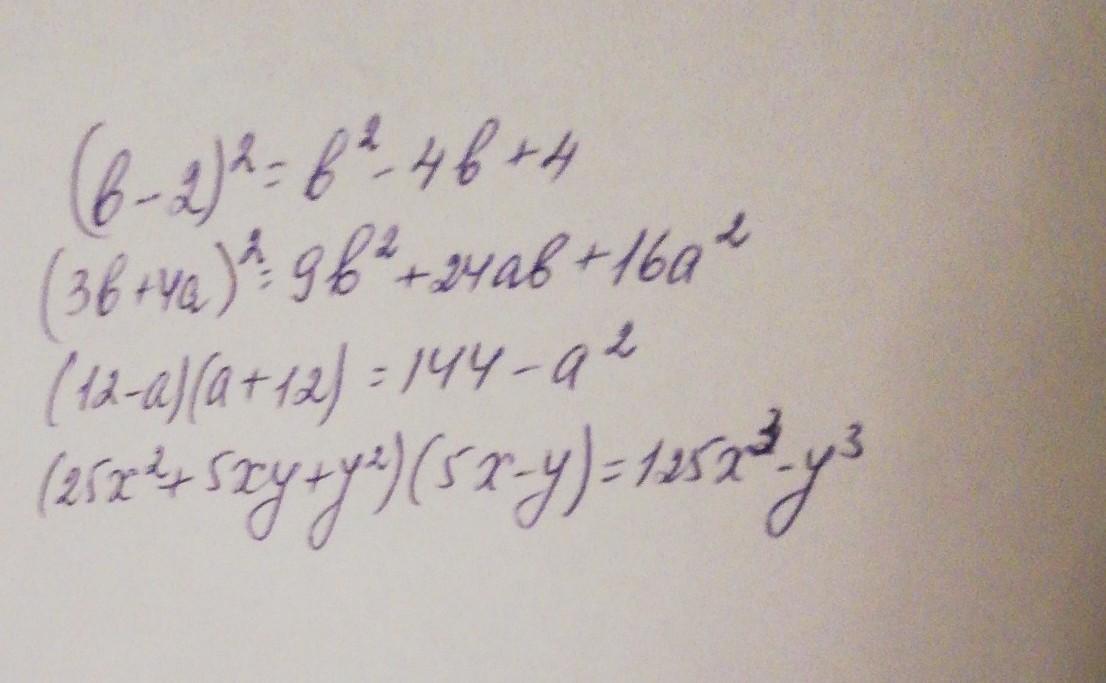 (b-2)²= b²-4b+4
(3b+4a)²= 9b²+24ab+16a²
(12-a)(a+12) =144-a²
(25x²+5xy+y²)(5x-y)=125x³-y³